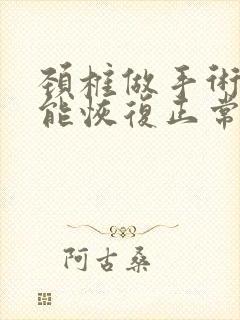 頚椎做手術
能恢復正常
阿古桑